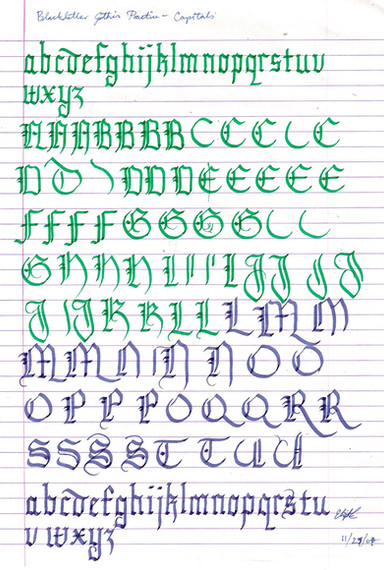 Blackletter Gothic Practice - Capitals
abcdefghijklmnopqrstuv
wxyz
AAABBBBCCCCC
DDDDDEEEEE
FFFFGGGG
GHHHIIIIJJJJ
JJKKLLLMM
MMMNNNOO
OPPPOQQRR
SSSSTTUU
abcdefghijklmnopqrstu
v wxyz
11/29/08